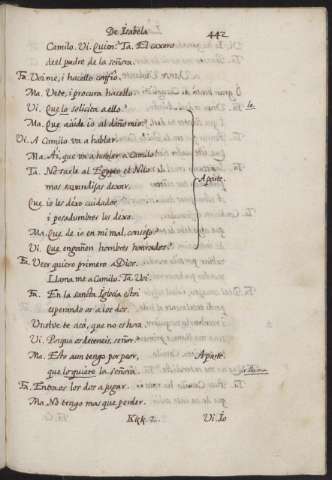 De Isabela 442
Camilo. Vi. Quien? Ta. El coxero
del padre de la señora.
Fa. Veime, i hacello
Ma. Vete, i procura hacello
Vi. Que lo solicita a ello? la
Ma. Que aiude io al daño mio?
Vi. A Camilo va a hablar.
Ma. Ai, que va a hablar a Camilo!
Ta. No sale al Egypto el Nilo Aparte.
mas
Que io les dexo cuidados
i pesadumbres les dexo.
Ma. Que de io en mi mal consejo
Vi. Que engañen hombres honrados?
Fa. Veer quiero primero a Dios.
Llama me a Camilo. Ta. Voi.
Fa. En la sancta Iglesia estoi
esperando os a los dos.
Un rato te acá, que no es hora.
Vi. Porque os deteneis, señor?
Ma. Esto aun tengo por peor, Aparte.
que lo quiere la señora.
Fa. Entraos los dos a jugar.
Ma. No tengo mas que perder.
Kkk 2. Vi. Io